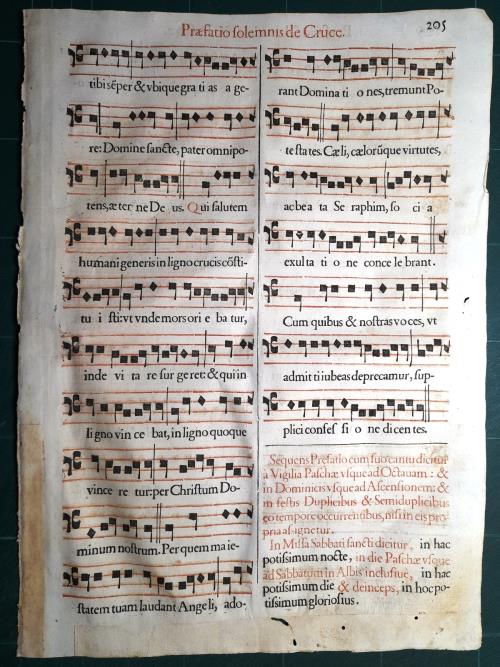 Præfatio solemnis de Cruce.
205
tibi sẽper & vbique gra ti as a ge-
re: Domine sancte, pater omnipo-
tens, æ ter ne De us. Qui salutem
humani generis in ligno crucis cõsti-
tu i sti: vt vnde mors ori e ba tur,
inde vi ta re sur ge ret: & qui in
ligno vin ce bat, in ligno quoque
vince re tur: per Christum Do-
minum nostrum. Per quem ma ie-
statem tuam laudant Ange li, ado-
rant Domina ti o nes, tremunt Po-
te sta tes. Cæ li, cælorũque virtutes,
ac bea ta Se raphim, so ci a
exul ta ti o ne conce le brant.
Cum quibus & nostras vo ces, vt
admit ti iubeas deprecamur, sup-
plici confes si o ne di cen tes.
Sequens Præfatio cum suo cantu dicitur
a Vigilia Paschæ vsque ad Octauam: &
in Dominicis vsque ad Ascensionem: &
in festis Duplicibus & Semiduplicibus
eo tempore occurrentibus, nisi in eis pro-
pria assignetur.
In Missa Sabbati sancti dicitur, in hac
potissimum nocte, in die Paschæ vsque
ad Sabbatum in Albis inclusiue, in hac
potissimum die & deinceps, in hoc po-
tissimum gloriosius.